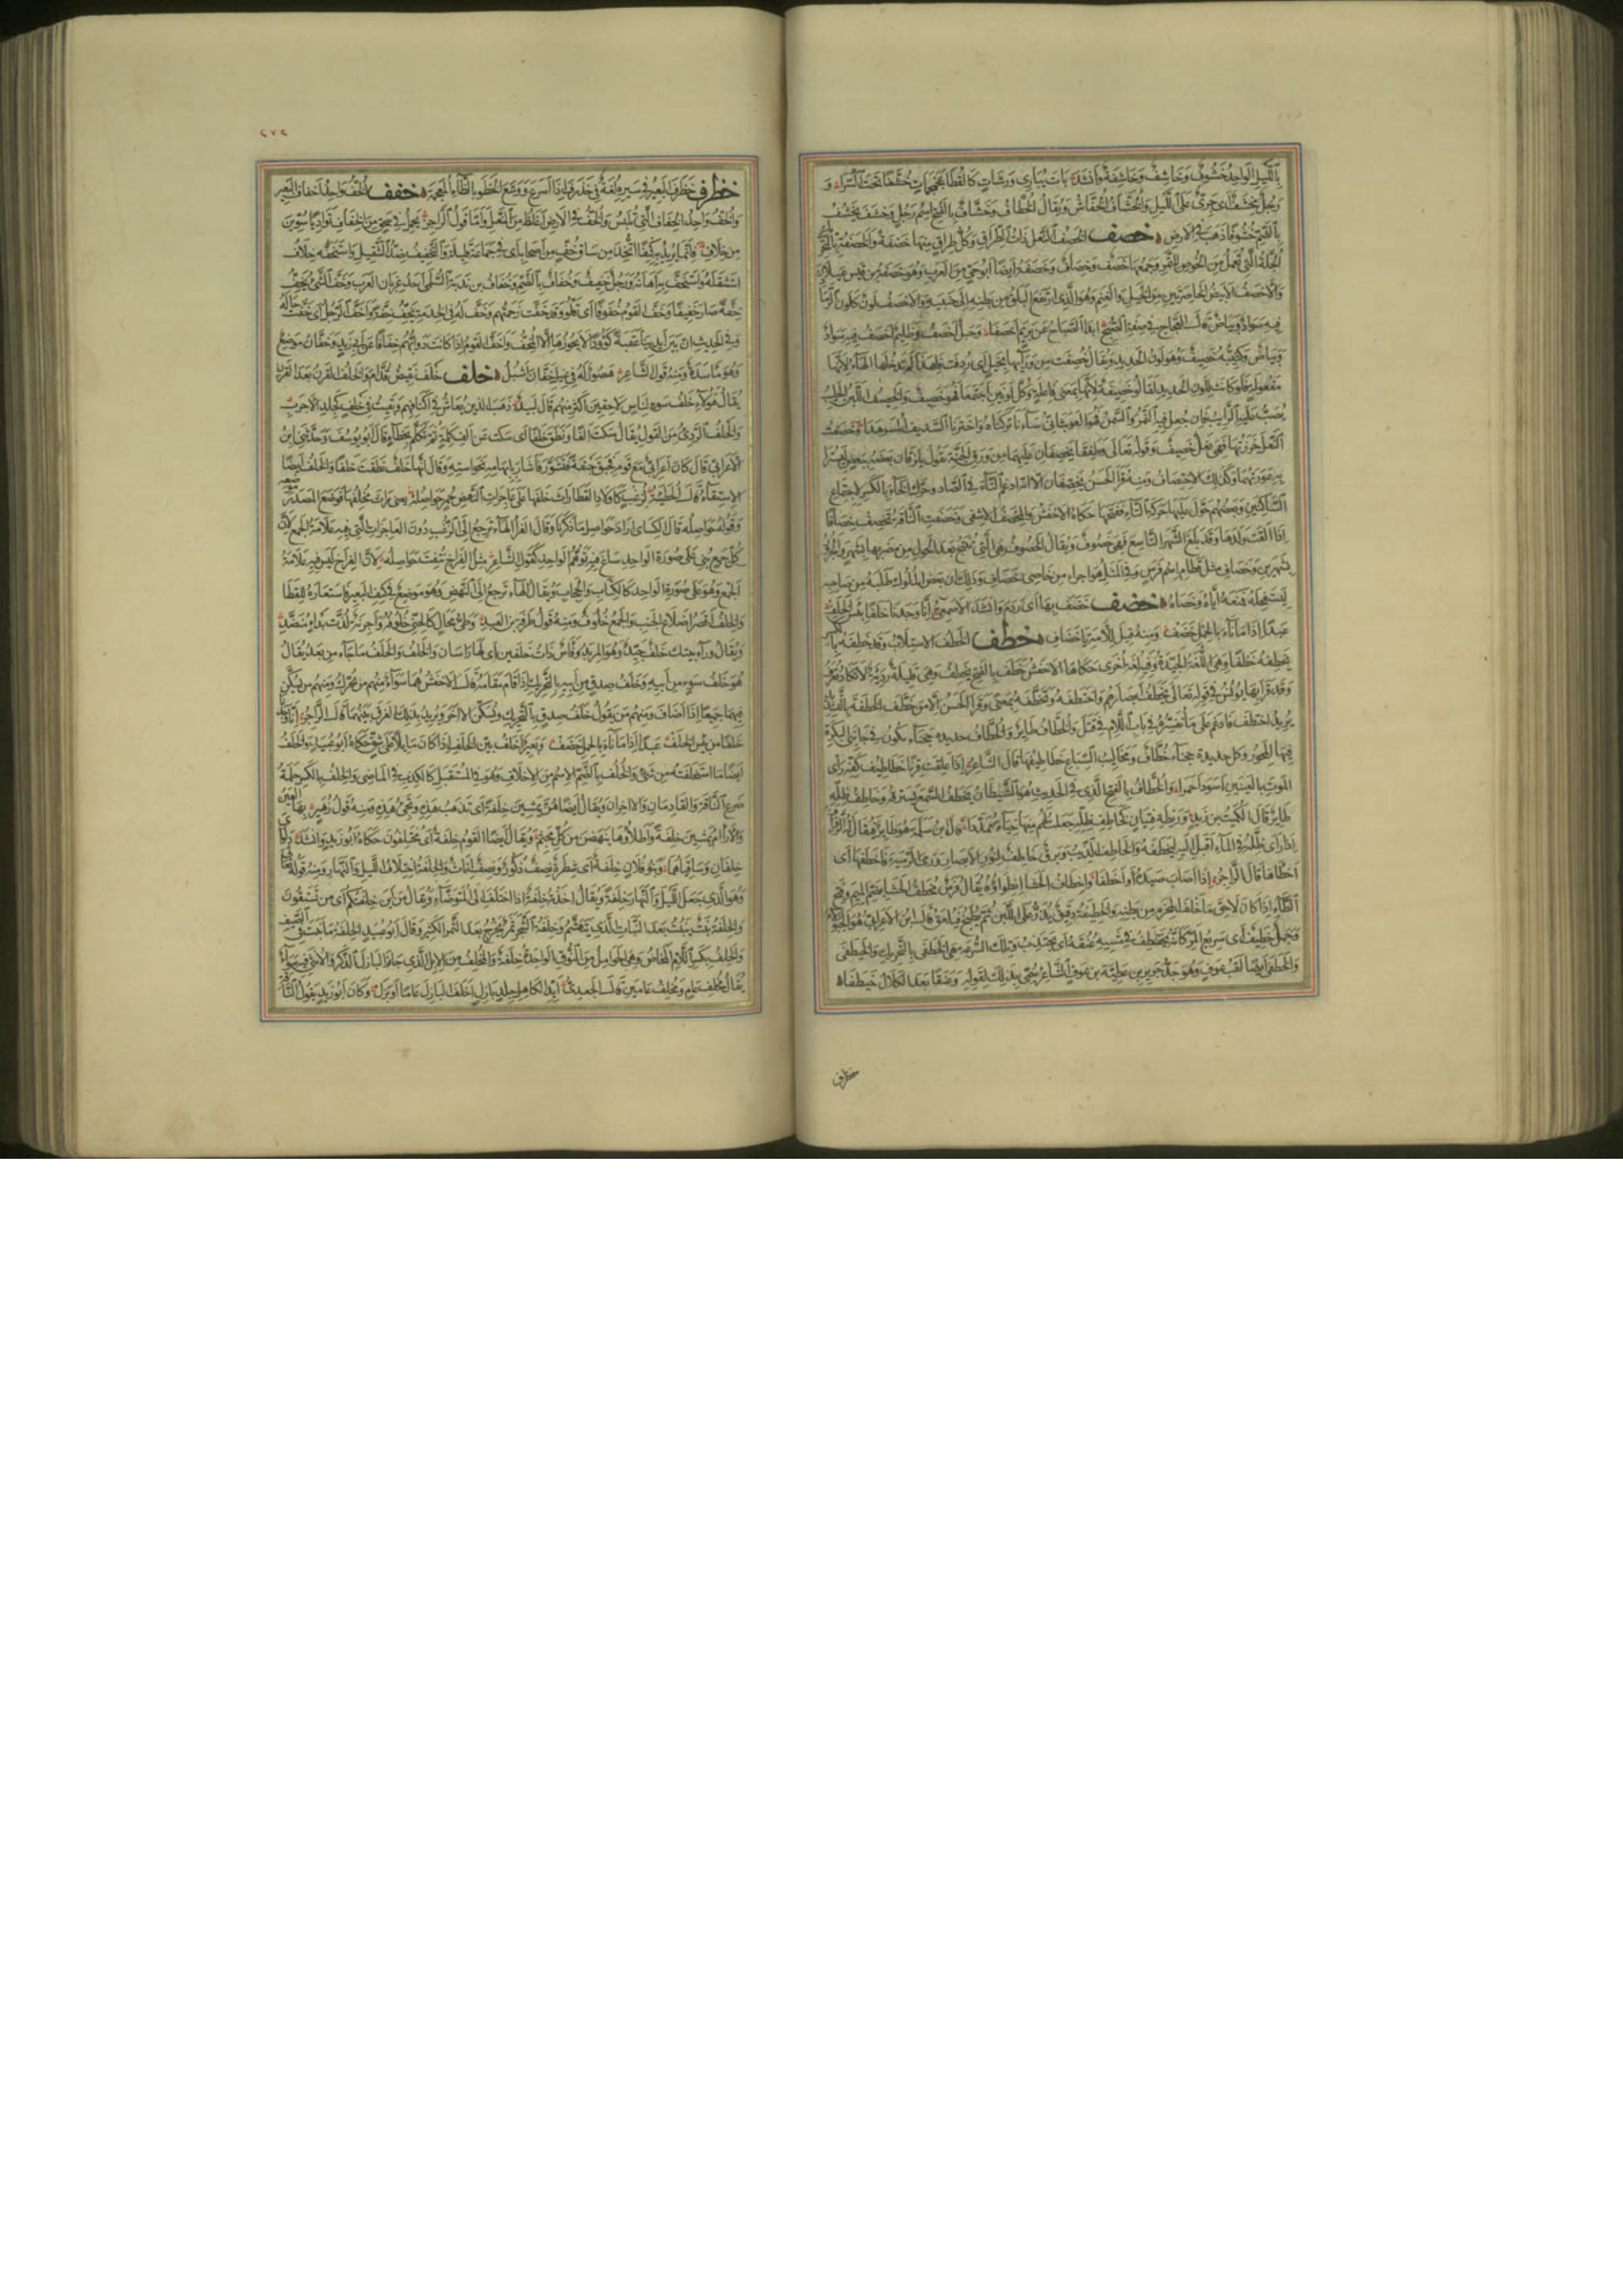 بالليل الواحد خشوف وخاشف وخاشفة وانشد بات يبارى ورشات كالقطا عجمجمات خشفا تحت السرى و
ورجل مخشف اى جرى على الليل والخشاف الخفاش ويقال الخطاف وخشاف بالفتح اسم رجل وخشف يخشف
بالضم خشوفا ذهب فى الارض خصف الخصف النعل ذات الطراق وكل طراق منها خصفة والخصفة بالتحريك
الجلة التى تعمل من الخوص للتمر وجمعها خصف وخصاف وخصفة ايضا ابو حى من العرب وهو خصفة بن قيس عيلان
والاخصف الابيض الخاصرتين من الخيل والغنم وهو الذى ارتفع البلق من بطنه الى جنبيه والاخصف لون كلون الرماد
فيه سواد وبياض قال العجاج فى صفة الصبح ابدى الصباح عن بريم اخصفا وحبل اخصف وظليم اخصف فيه سواد
وبياض وكتيبة خصيف وهو لون الحديد ويقال خصفت من ورآئها بخيل اى ردفت فلهذا لم تدخلها الهآء لانها
مفعولة فلو كانت للون الحديد لقالوا خصيفة لانها بمعنى فاعلة وكل لونين اجتمعا فهو خصيف والخصيف اللبن الحليب
يصب عليه الرايب فان جعل فيه التمر والسمن فهو العوبثانى
النعل خرزتها فهى نعل خصيف وقوله تعالى وطفقا يخصفان عليهما من ورق الجنة يقول يلزقان بعضه ببعض ليسترا
به عورتهما وكذلك الاختصاف ومنه قرا الحسن يخصفان الا انه ادغم التاء فى الصاد وحرك الخاء بالكسر لاجتماع
الساكنين وبعضهم حول عليها حركة التاء ففتحها حكاه الاخفش والمخصف الاشفى وخصفت الناقة تخصف خصافا
اذا القت ولدها وقد بلغ الشهر التاسع فهى خصوف ويقال الخصوف هى التى تنتج بعد الحول من مضربها بشهر والجرور
بشهرين وخصاف مثل قطام اسم فرس وفى المثل هو اجرا من خاصى خصاف وذلك ان بعض الملوك طلبه من صاحبه
ليستفحله فمنعه اياه وخصاه خضف خضف بها اى ردم وانشد الاصمعى انا وجدنا خلفا بئس الخلف
عبدا اذا ما ناء بالحمل خضف ومنه قيل للامة يا خضاف خطف الخطف الاستلاب وقد خطفه بالكسر
يخطفه خطفا وهى اللغة الجيدة وفيه لغة اخرى حكاها الاخفش خطف بالفتح يخطف وهى قليلة ردية لا تكاد تعرف
وقد قرا بها يونس فى قوله تعالى يخطف ابصارهم واختطفه وتخطفه بمعنى وقرا الحسن الا من خطف الخطفة بالتشديد
يريد اختطف فادغم على ما نفسره فى باب اللام فى قتل والخطاف طاير والخطاف حديدة حجناء تكون فى جانبى البكرة
فيها المحور وكل حديدة حجناء خطاف ومخاليب السباع خطاطيفها قال الشاعر اذا علقت قرنا خطاطيف كفه راى
الموت بالعينين اسود احمرا والخطاف بالفتح الذى فى الحديث هو الشيطان يخطف السمع يسترقه وخاطف ظله
طاير قال الكميت بن زيد وريطة فتيان كخاطف ظله جعلت لهم منها خباء ممددا قال ابن سلمة هو طاير يقال له الرفراف
اذا راى ظله فى الماء اقبل اليه ليخطفه والخاطف الذيب وبرق خاطف لنور الابصار ورمى الرمية فاخطفها اى
اخطاها قال الراجز اذا اصاب صيده او اخطفا واخطاف الحشا انطواؤه يقال فرس مخطف الحشا بضم الميم وفتح
الطاء اذا كان لاحق ما خلف المحزم من بطنه والخطيفة دقيق يذر على اللبن ثم يطبخ فيلعق قال ابن الاعرابى هو الحبولاء
وجمل خطيف اى سريع المر كانه يختطف فى مشيه عنقه اى يجتذب وتلك السرعة هى الخطفى بالتحريك والخيطفى
والخطفى ايضا لقب عوف وهو جد جرير بن عطية بن عوف الشاعر سمى بذلك لقوله وعنقا بعد الكلال خيطفا
خظرف
٢٧٢
خظرف خظرف البعير فى سيره لغة فى خذرف اذا اسرع ووسع الخطو بالظاء المعجمة خفف الخف واحد اخفاف البعير
والخف واحد الخفاف التى تلبس والخف فى الارض اغلظ من النعل واما قول الراجز يحمل فى سحق من الخفاف تواديا سوين
من خلاف فانما يريد به كنفا اتخذ من ساق خف من اصحابه اى فى جماعة قليلة والتخفيف ضد التثقيل واستخفه خلاف
استثقله واستخف به اهانه ورجل خفيف وخفاف بالضم وخفاف بن ندبة السلمى احد غربان العرب وخف الشى يخف
خفة صار خفيفا وخف القوم خفوفا اى قلوا وقد خفت زحمتهم وخف له فى الخدمة يخف خفة واخف الرجل اى خفت حاله
وفى الحديث ان بين ايدينا عقبة كؤودا لا يجوزها الا المخف واخف القوم اذا كانت دوابهم خفافا عن ابى زيد وخفان موضع
وهو ماسدة ومنه قول الشاعر هصور له فى غيل خفان اشبل خلف خلف نقيض قدام والخلف القرن بعد القرن
يقال هولاء خلف سوء لناس لاحقين اكثر منهم قال لبيد ذهب الذين يعاش فى اكنافهم وبقيت فى خلف كجلد الاجرب
والخلف الردى من القول يقال سكت الفا ونطق خلفا اى سكت عن الف كلمة ثم تكلم بخطاء قال ابو يوسف وحدثنى ابن
الاعرابى قال كان اعرابى مع قوم فحبق حبقة فتشور فاشار بابهامه نحو استه وقال انها خلف نطقت خلفا والخلف ايضا
الاستقاء قال الحطيئة لزغب كاولاد القطا راث خلفها على عاجزات النهض حمر حواصله يعنى راث مخلفها فوضع المصدر موضعه
وقوله حواصله قال الكساى اراد حواصل ما ذكرنا وقال الفرا الهاء ترجع الى الزغب دون العاجزات التى فيه علامة الجمع لان
كل جمع بنى على صورة الواحد ساغ فيه توهم الواحد كقول الشاعر مثل الفراخ نتفت حواصله لان الفراخ ليس فيه علامة
الجمع وهو على صورة الواحد كالكتاب والحجاب ويقال الهاء ترجع الى النهض وهو موضع فى كتف البعير فاستعاره للقطا
والخلف اقصر اضلاع الجنب والجمع خلوف ومنه قول طرفة بن العبد وطى محال كالحنى خلوفه واجرنة لزت بداى منضد
ويقال وراء بيتك خلف جيد وهو المربد وفاس ذات خلفين اى لها راسان والخلف والخلف ما جاء من بعد يقال
هو خلف سوء من ابيه وخلف صدق من ابيه بالتحريك اذا قام مقامه قال الاخفش هما سواء منهم من يحرك ومنهم من يسكن
فيهما جميعا اذا اضاف ومنهم من يقول خلف صدق بالتحريك ويسكن الاخر ويريد بذلك الفرق بينهما قال الراجز انا وجدنا
خلفا من بئس الخلف عبدا اذا ما ناء بالحمل خضف وبعير اخلف بين الخلف اذا كان مايلا على شق حكاه ابو عبيد والخلف
ايضا ما استخلفته من شى والخلف بالضم الاسم من الاخلاف وهو فى المستقبل كالكذب فى الماضى والخلف بالكسر حلمة
ضرع الناقة القادمان والاخران ويقال ايضا هن يمشين خلفة اى تذهب هذه وتجى هذه ومنه قول زهير بها العين
والاراام يمشين خلفة واطلاؤها ينهضن من كل مجثم ويقال ايضا القوم خلفة اى مختلفون حكاه ابو زيد وانشد دلواى
خلفان وساقياهما وبنو فلان خلفة اى شطرة نصف ذكور ونصف اناث والخلفة اختلاف الليل والنهار ومنه قوله تعالى
وهو الذى جعل الليل والنهار خلفة ويقال اخذته خلفة اذا اختلف الى المتوضاء ويقال من اين خلفتكم اى من تستقون
والخلفة نبت ينبت بعد النبات الذى يتهشم وخلفة الشجر ثمر يخرج بعد الثمر الكثير وقال ابو عبيد الخلفة ما نبت فى الصيف
والخلف بكسر اللام المخاض وهى الحوامل من النوق الواحدة خلفة والمخلف من الابل الذى جاز البازل الذكر والانثى فيه سواء
يقال مخلف عام ومخلف عامين قال الجعدى ايد الكاهل جلد بازل اخلف البازل عاما او بزل وكان ابو زيد يقول الناقة